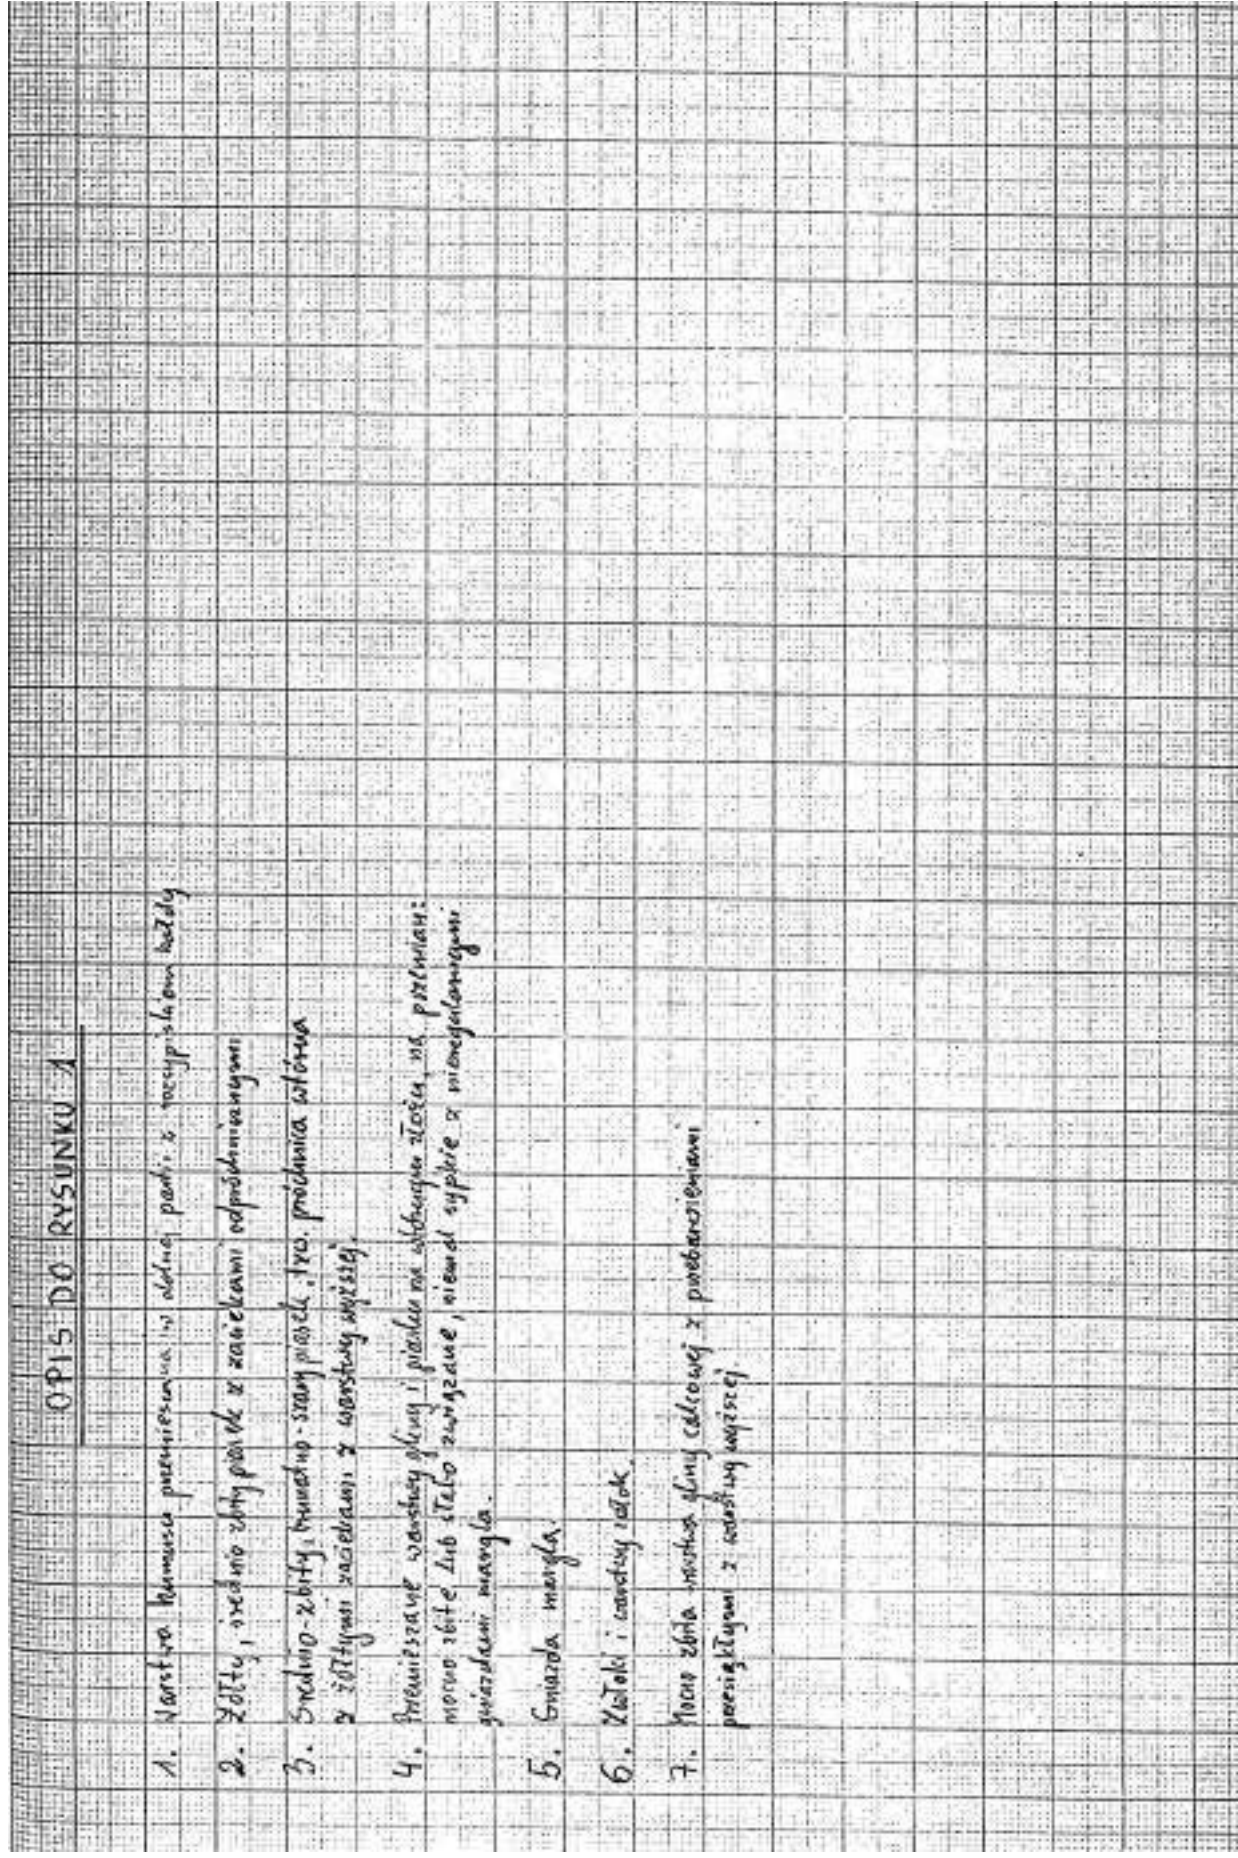 OPIS DO RYSUNKU 1
1. Warstwa humusu przemieszana w dolnej partii z rozsypiskiem hałdy
2. Żółty, średnio zbity piasek z zaciekami odpróchnicznymi
3. Średnio-zbity, brunatno-szary piasek, tzw. próchnica wtórna
z żółtymi zaciekami z warstwy wyższej.
4. Przemieszane warstwy gliny i piasku na wtórnym złożu, na przemian:
mocno zbite lub słabo związane, niemal sypkie z nieregularnymi
gniazdami margla.
5. Gniazda margla.
6. Zwłoki i warstwy zwłok.
7. Mocno zbita warstwa gliny calcowej z przebarwieniami
przesiękłymi z warstwy wyższej.